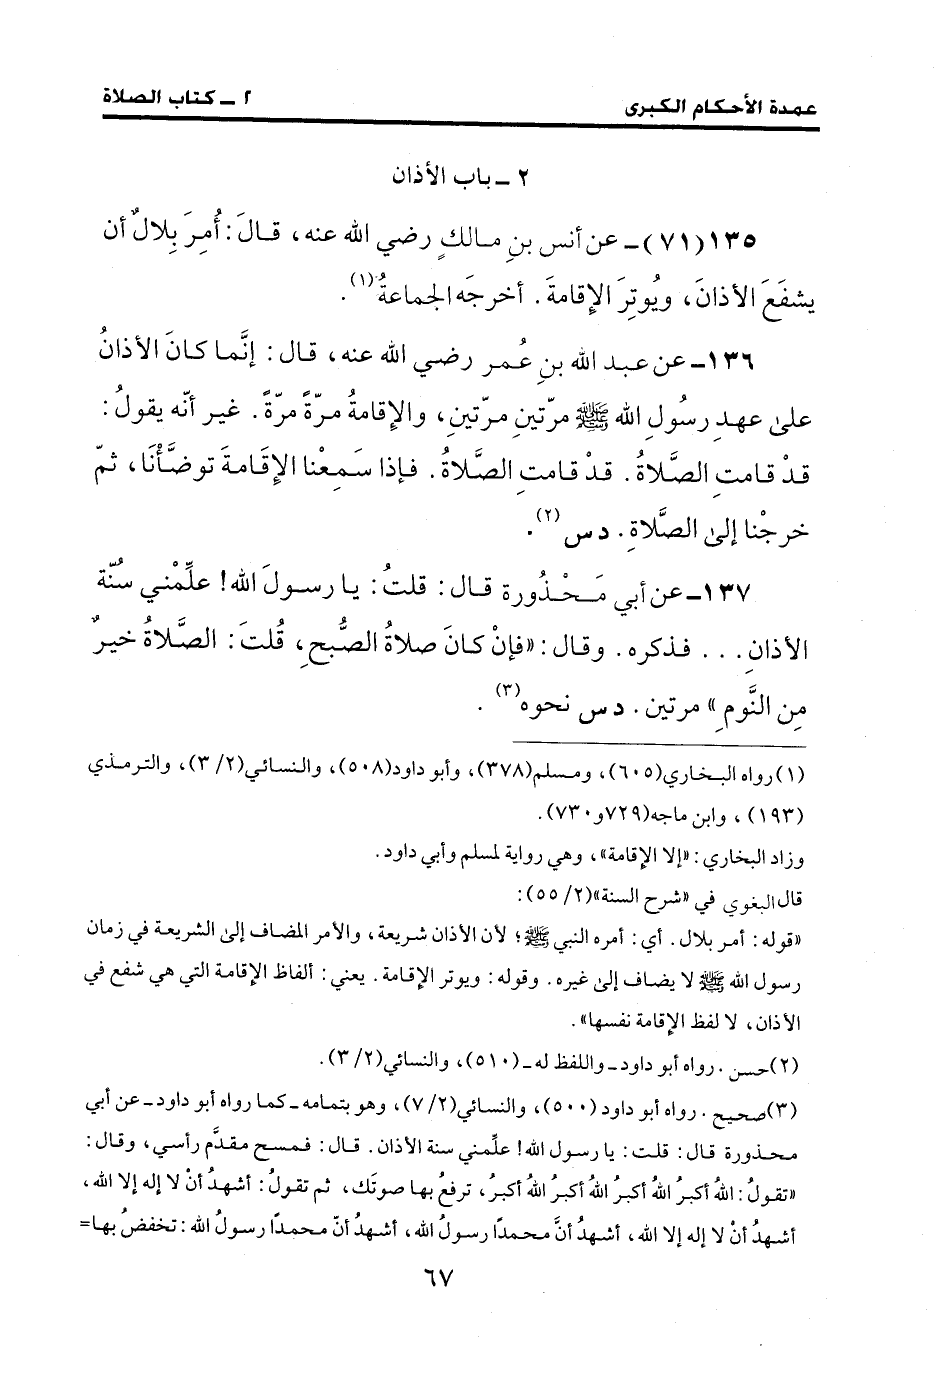 عمدة الأحكام الكبرى
٢ ـ كتاب الصلاة
٢ ـ باب الأذان
١٣٥(٧١)ـ عن أنس بنِ مالكٍ رضي الله عنه، قالَ: أُمِرَ بِلالٌ أن
يشفَعَ الأذانَ، ويُوتِرَ الإقامةَ. أخرجَه الجماعةُ(١).
١٣٦ـ عن عبد الله بنِ عُمر رضي الله عنه، قال: إنَّما كانَ الأذانُ
علىٰ عهدِ رسُولِ الله ﷺ مرّتينِ مرّتينِ، والإقامةُ مرّةً مرّةً. غير أنّه يقولُ:
قدْ قامتِ الصَّلاةُ. قدْ قامتِ الصَّلاةُ. فإذا سَمِعْنا الإقَامةَ توضَّأْنَا، ثمّ
خرجْنا إلىٰ الصَّلاةِ. د س(٢).
١٣٧ـ عن أبي مَحْذُورة قال: قلتُ: يا رسولَ الله! علِّمْني سُنّة
الأذانِ... فذكره. وقال: «فإنْ كانَ صلاةُ الصُّبحِ، قُلتَ: الصَّلاةُ خيرٌ
مِن النَّومِ» مرتين. د س نحوه(٣).
(١) رواه البخاري(٦٠٥)، ومسلم(٣٧٨)، وأبو داود(٥٠٨)، والنسائي(٣/٢)، والترمذي
(١٩٣)، وابن ماجه(٧٢٩و٧٣٠).
وزاد البخاري: «إلا الإقامة»، وهي رواية لمسلم وأبي داود.
قال البغوي في «شرح السنة»(٥٥/٢):
«قوله: أمر بلال. أي: أمره النبي ﷺ؛ لأن الأذان شريعة، والأمر المضاف إلىٰ الشريعة في زمان
رسول الله ﷺ لا يضاف إلىٰ غيره. وقوله: ويوتر الإقامة. يعني: ألفاظ الإقامة التي هي شفع في
الأذان، لا لفظ الإقامة نفسها».
(٢) حسن. رواه أبو داود ـ واللفظ له ـ (٥١٠)، والنسائي(٣/٢).
(٣) صحيح. رواه أبو داود (٥٠٠)، والنسائي(٧/٢)، وهو بتمامه ـ كما رواه أبو داود ـ عن أبي
محذورة قال: قلت: يا رسول الله! علِّمني سنة الأذان. قال: فمسح مقدَّم رأسي، وقال:
«تقولُ: اللهُ أكبرُ اللهُ أكبرُ اللهُ أكبرُ اللهُ أكبرُ، ترفعُ بها صوتَك، ثم تقولُ: أشهدُ أنْ لا إله إلا الله،
أشهدُ أنْ لا إله إلا الله، أشهدُ أنَّ محمدًا رسولُ الله، أشهدُ أنّ محمدًا رسولُ الله: تخفضُ بها=
٦٧